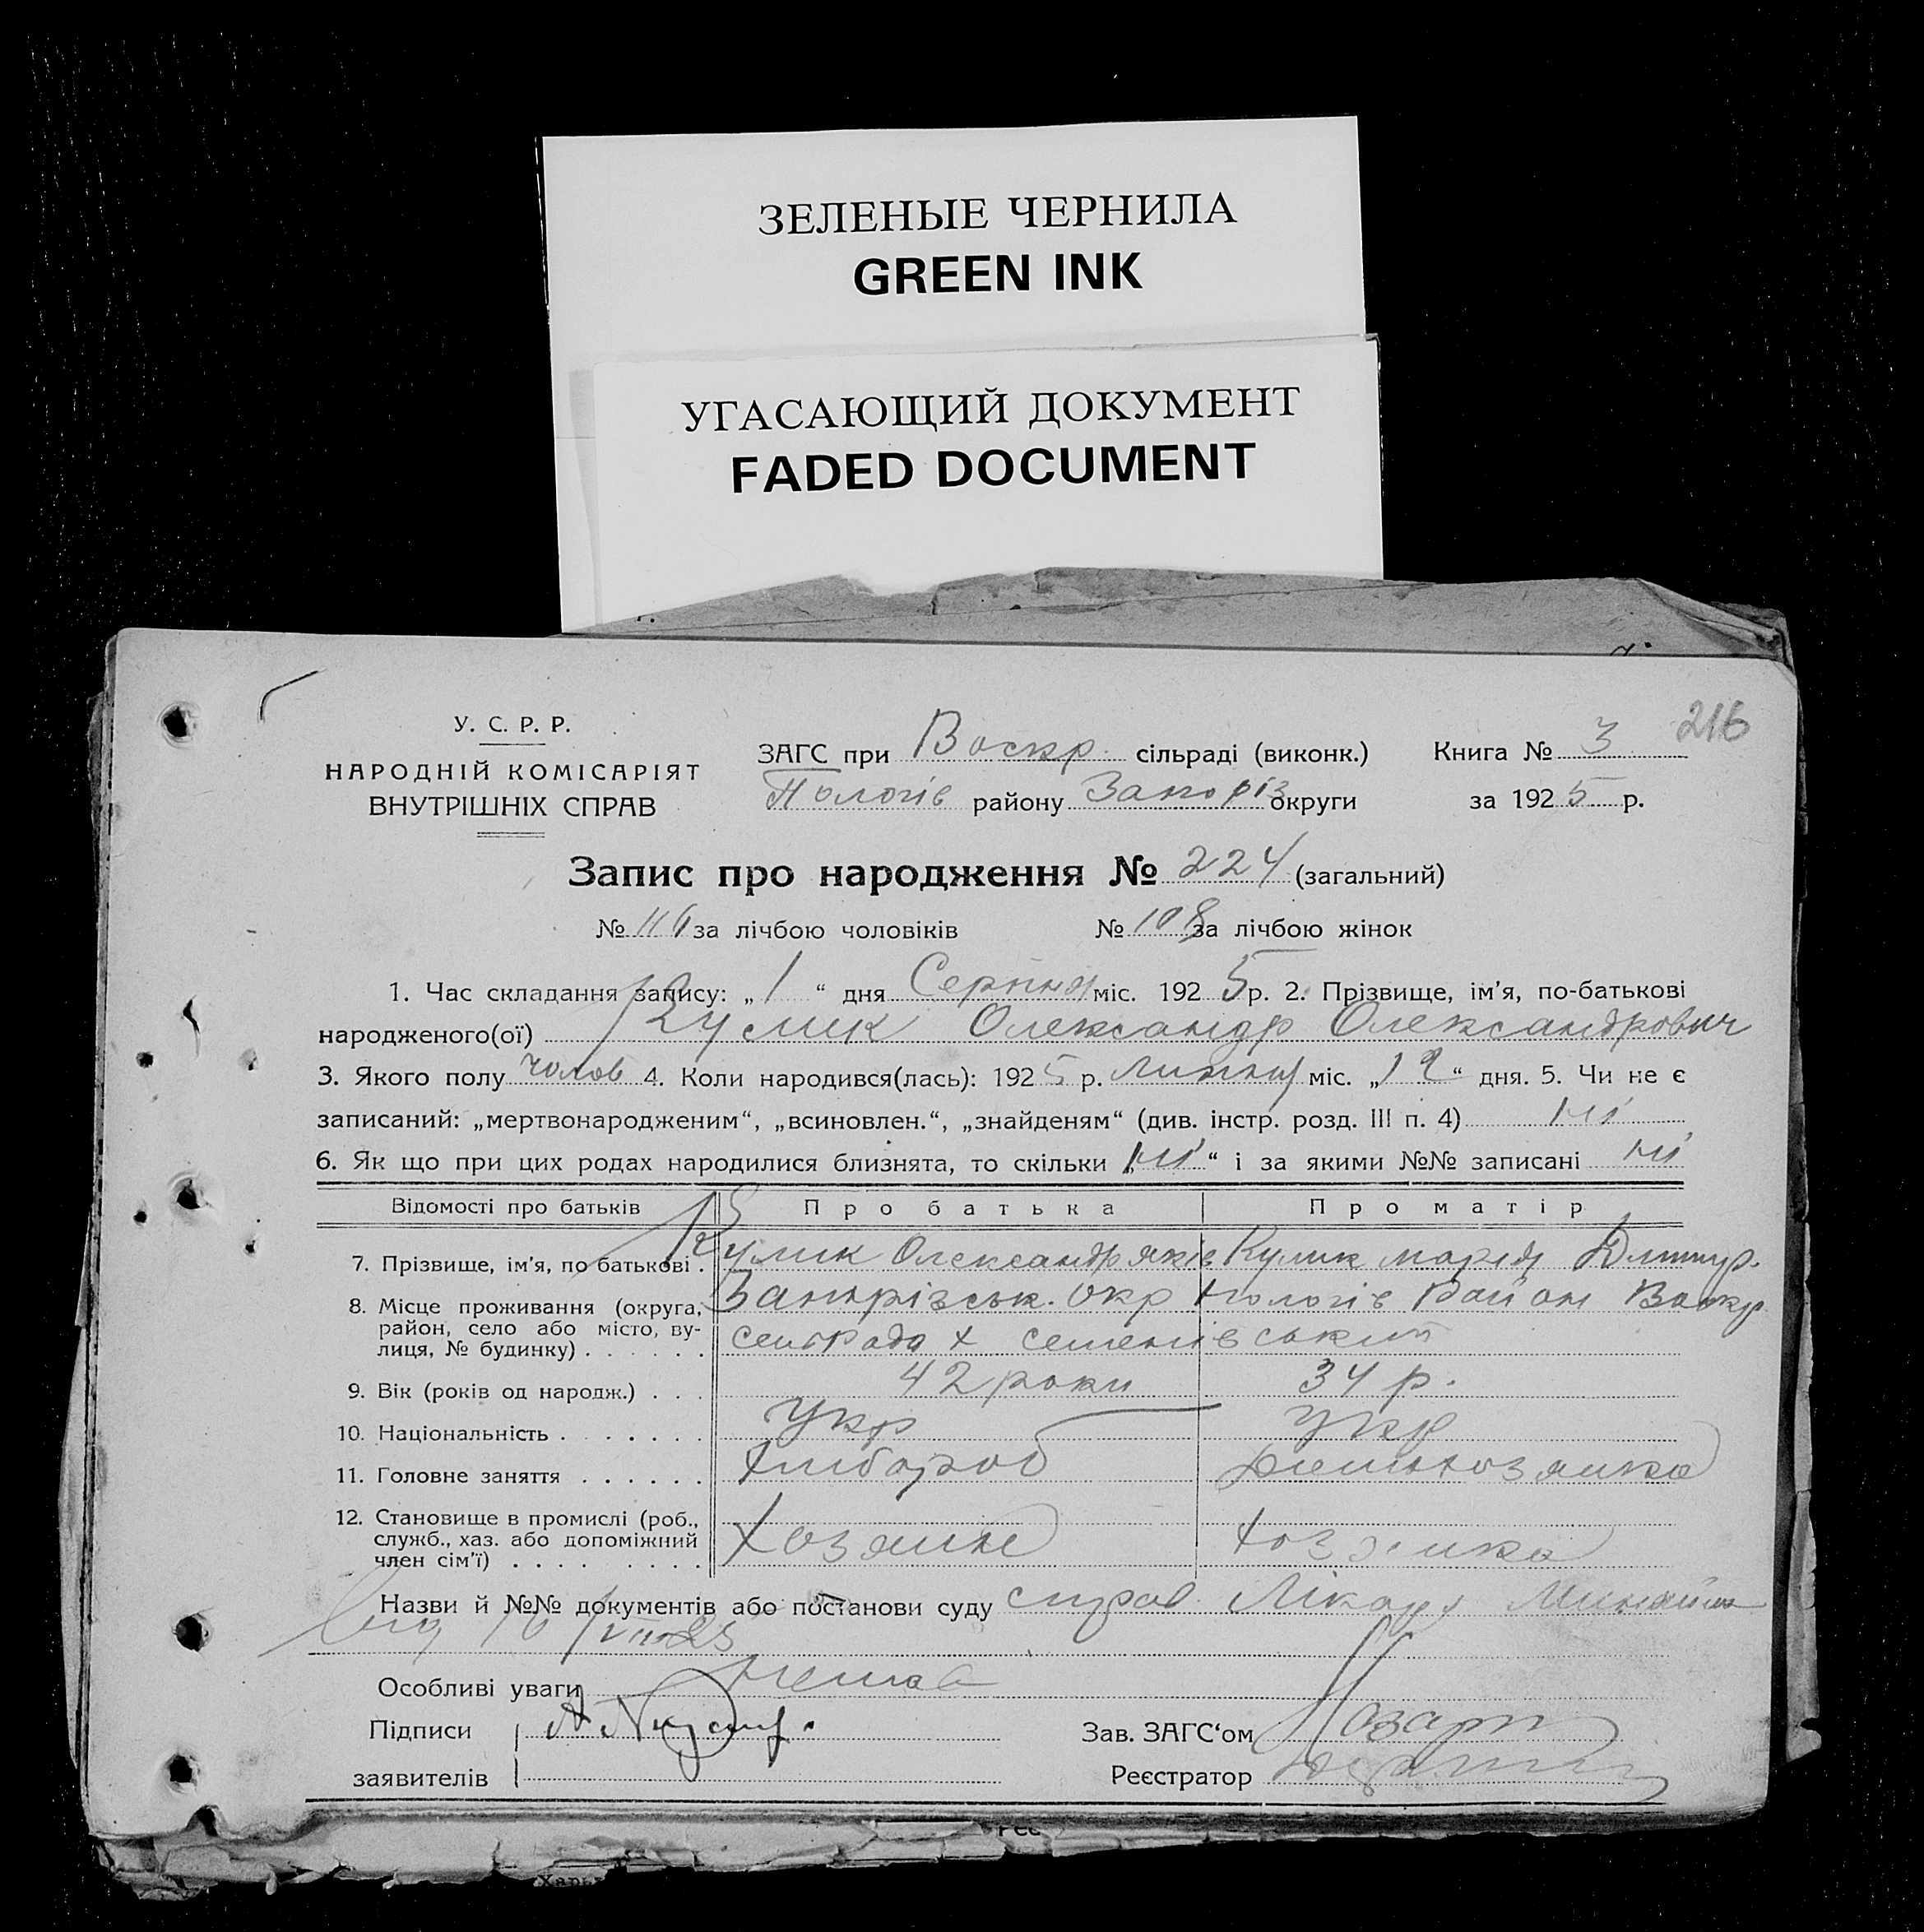 ЗЕЛЕНЫЕ ЧЕРНИЛА
GREEN INK
УГАСАЮЩИЙ ДОКУМЕНТ
FADED DOCUMENT
216
У. С. Р. Р.
НАРОДНІЙ КОМІСАРІЯТ
ВНУТРІШНІХ СПРАВ
ЗАГС при Воскр. сільраді (виконк.) Книга № 3
Пологів району Запоріз округи за 1925 р.
Запис про народження № 224 (загальний)
№ 116 за лічбою чоловіків № 108 за лічбою жінок
1. Час складання запису: „1“ дня Серпня міс. 1925 р. 2. Прізвище, ім'я, по-батькові
народженого(ої) Кулик Олександр Олександрович
3. Якого полу Чолов 4. Коли народився(лась): 1925 р. Липня міс. „12“ дня. 5. Чи не є
записаний: „мертвонародженим“, „всиновлен.“, „знайденям“ (див. інстр. розд. III п. 4) ні
6. Як що при цих родах народилися близнята, то скільки „ні“ і за якими №№ записані ні
Відомості про батьків Про батька Про матір
7. Прізвище, ім'я, по батькові. Кулик Олександр Яків Кулик Марія Дмитр.
8. Місце проживання (округа, район, село або місто, вулиця, № будинку) Запорізськ. Окр Пологів Район Воскр
сельрада х Семенівський
9. Вік (років од народж.) 42 роки 34 р.
10. Національність Укр Укр
11. Головне заняття Хлибороб Домохозяйка
12. Становище в промислі (роб., служб., хаз. або допоміжний член сім'ї) Хозяин Хозяйка
Назви й №№ документів або постанови суду справ. Лікаря
Особливі уваги Нема
Підписи
заявителів
Зав. ЗАГС'ом
Реєстратор